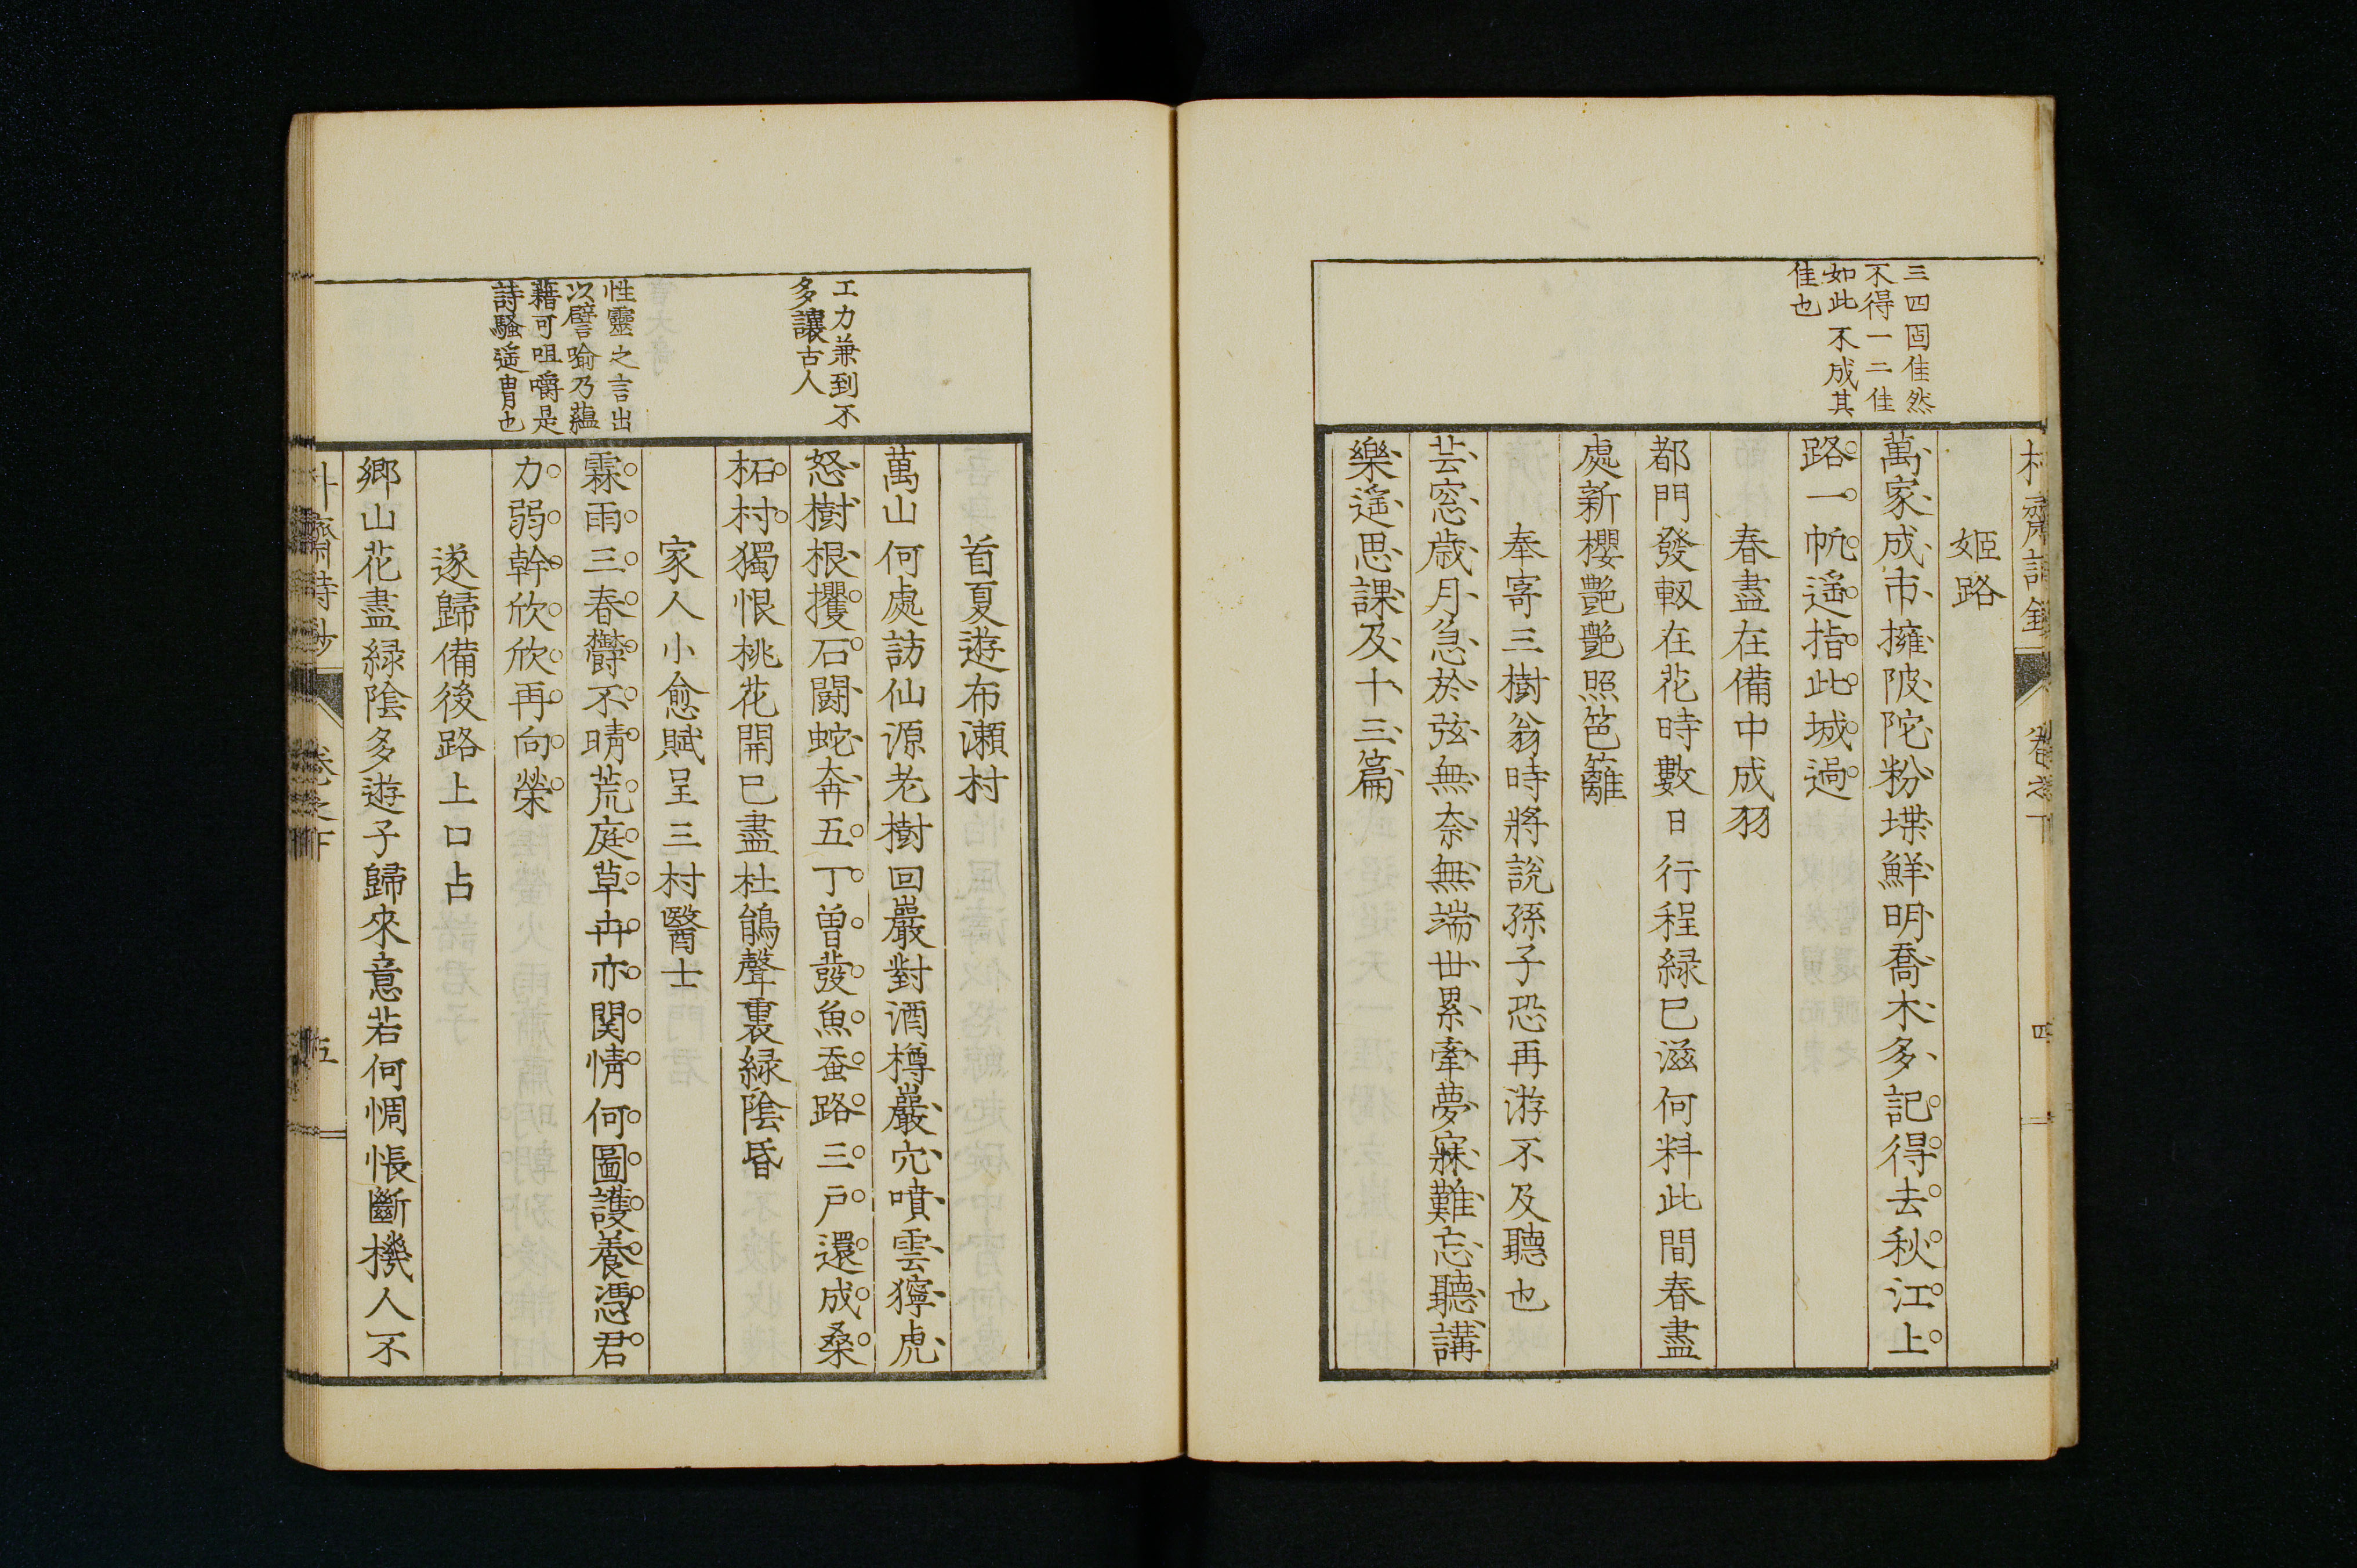 姫路
三四固佳然
不得一二佳
如此不成其
佳也
萬家成市擁陂陀粉堞鮮明喬木多記得去秋江上
路一帆遙指此城過
春盡在備中成羽
都門發軔在花時數日行程緑已滋何料此間春盡
處新櫻艶艶照笆籬
奉寄三樹翁時將説孫子恐再游不及聽也
芸窓歳月急於弦無奈無端世累牽夢寐難忘聽講
樂遙思課及十三篇
首夏遊布瀬村
工力兼到不
多讓古人
萬山何處訪仙源老樹回巖對酒樽巖穴噴雲獰虎
怒樹根攫石鬪蛇奔五丁曽發魚蚕路三戸還成桑
柘村獨恨桃花開已盡杜鵑聲裏緑陰昏
家人小愈賦呈三村醫士
性靈之言出
以譬喩乃蘊
藉可咀嚼是
詩騒遙冑也
霖雨三春欝不晴荒庭草卉亦関情何圖護養憑君
力弱幹欣欣再向榮
遂歸備後路上口占
鄉山花盡緑陰多遊子歸來意若何惆悵斷機人不
卷之下
五